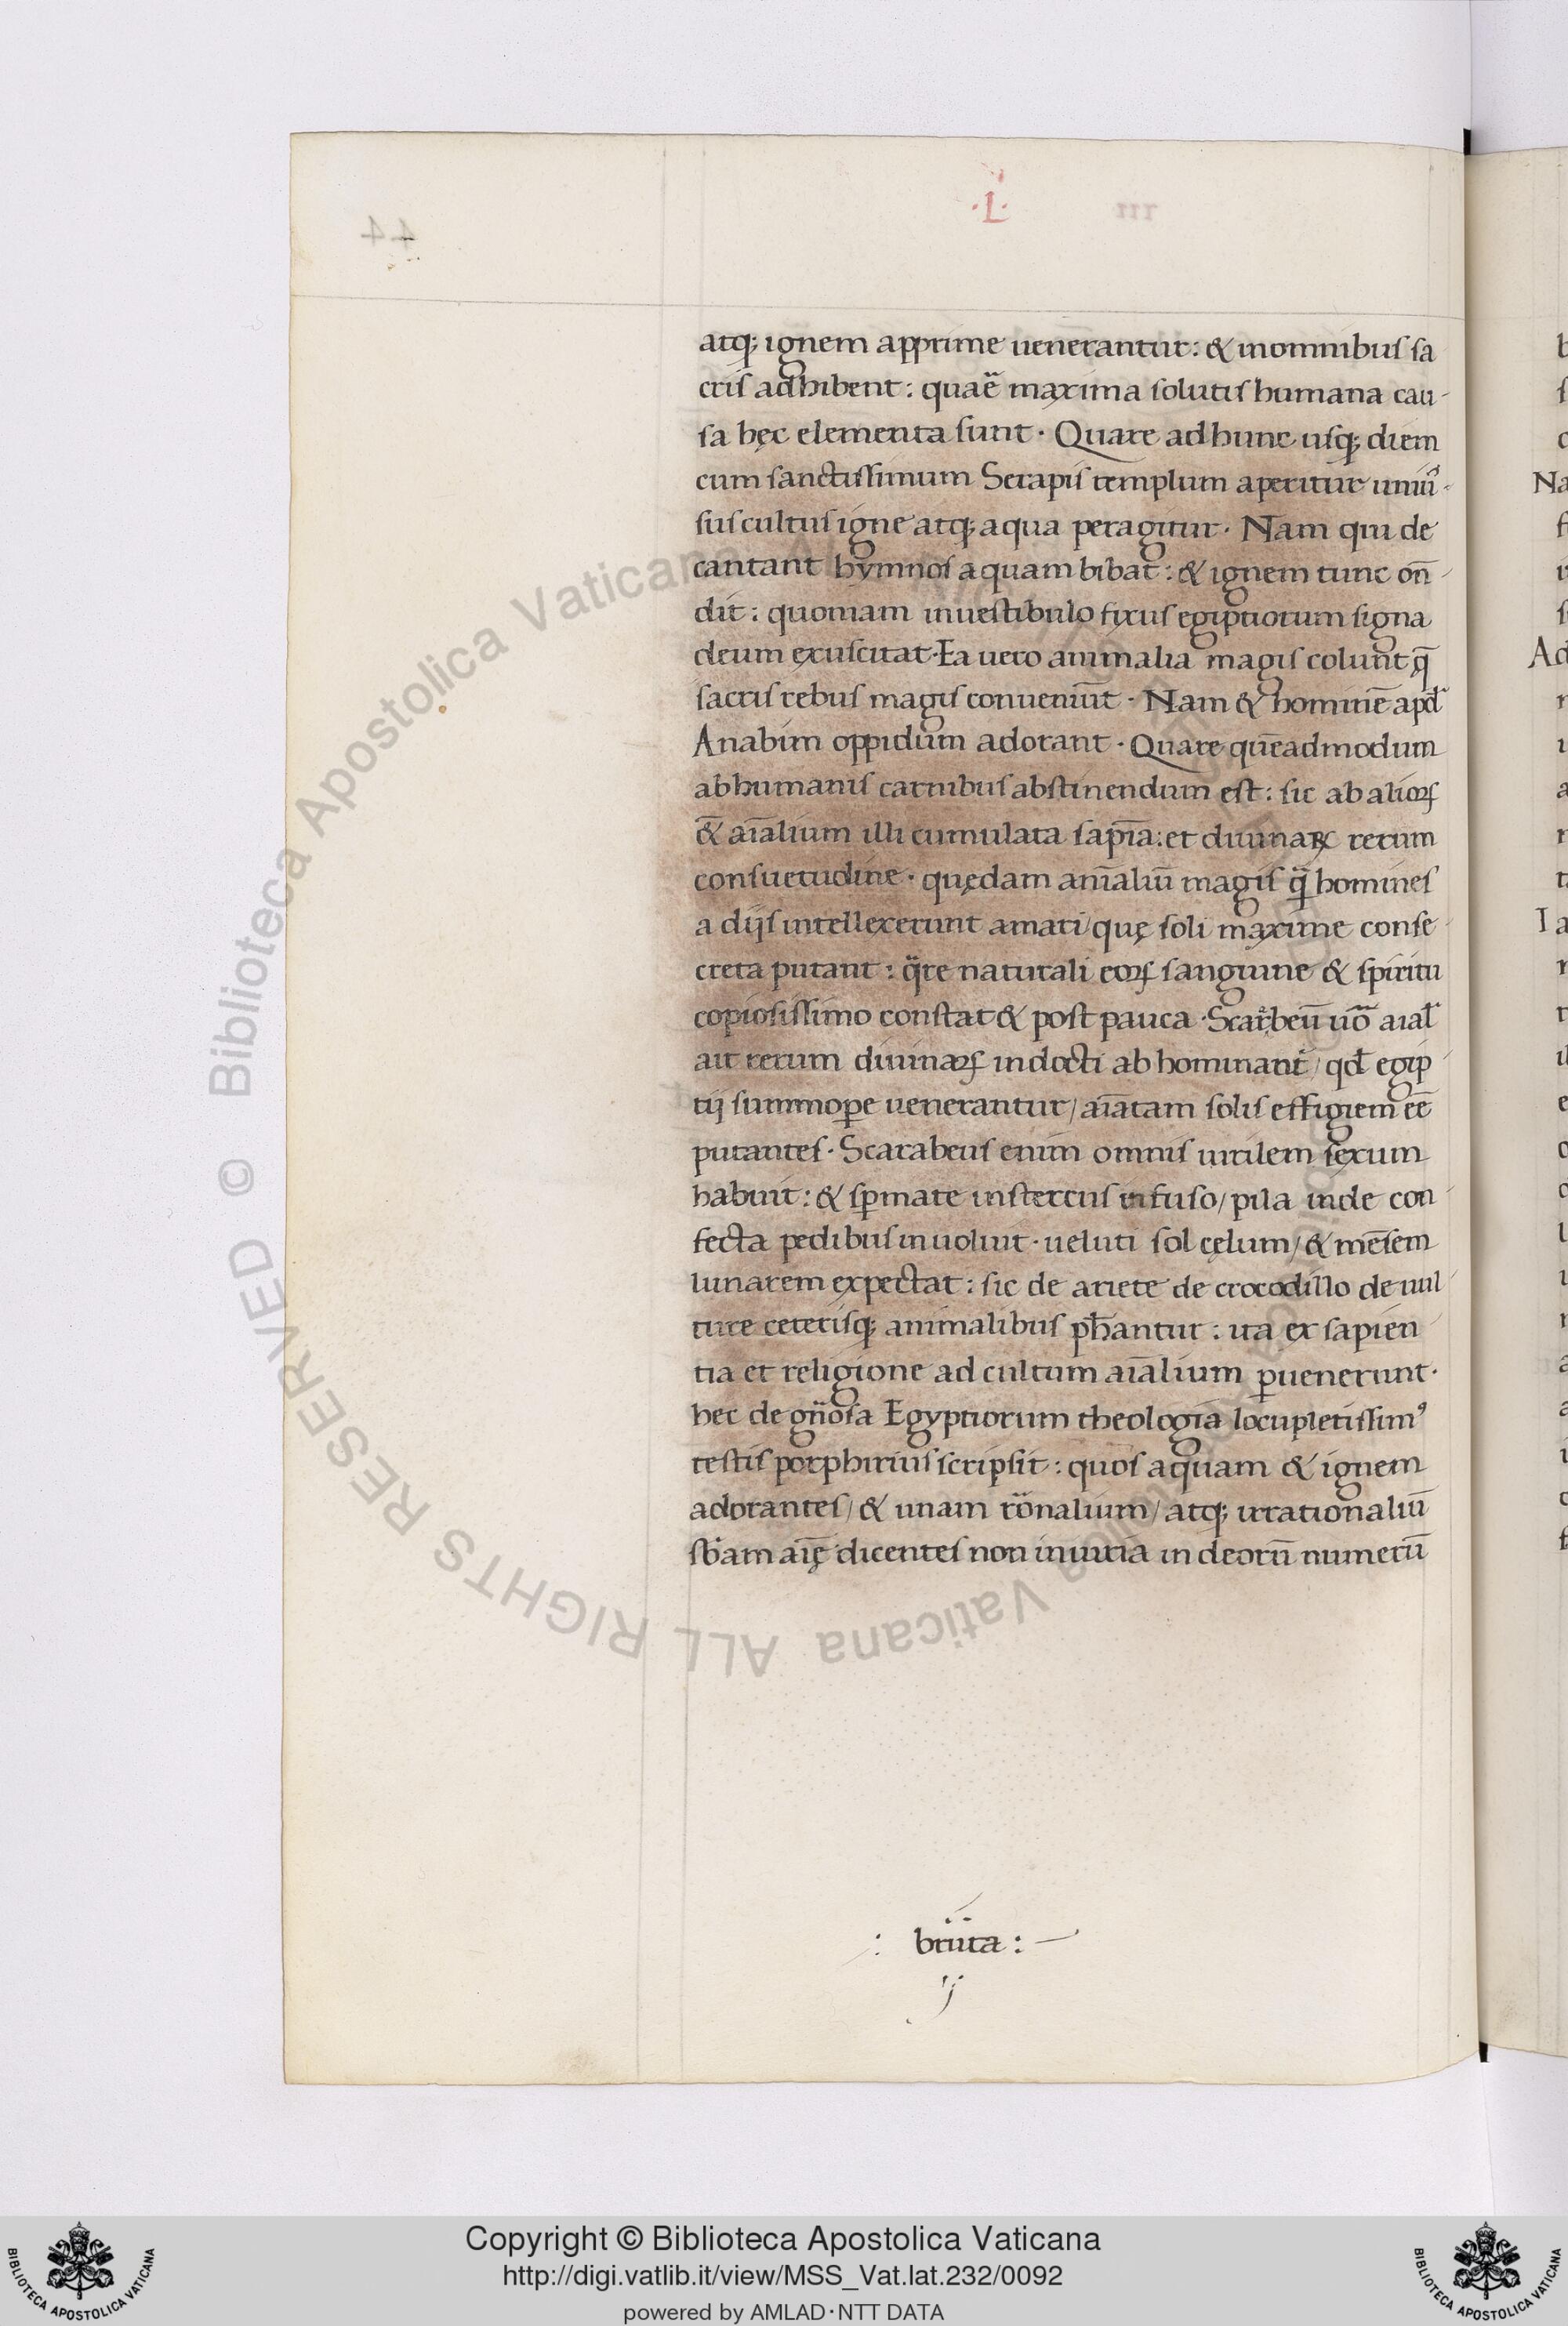 ·L·
atq; ignem apprime uenerantur: & inomnibus sa
cris adhibent: quaē maxima solutis humana cau-
sa hęc elementa sunt · Quare ad hunc usq; diem
cum sanctissimum Serapis templum aperitur uniu͛-
sus cultus igne atq; aqua peragitur · Nam qui de
cantant hymnos aquam bibat: & ignem tunc on̄-
dit: quoniam inuestibulo fixus egiptiorum signa
deum exuscitat·Ea uero animalia magis colunt q̄
sacris rebus magis conueniūt · Nam & hominē apd̄
Anabim oppidum adorant · Quare quēadmodum
ab humanis carnibus abstinendum est: sic ab alioꝝ
& aīalium illi cumulata sapīa: et diuinaꝝ rerum
consuetudine · quędam anīaliū magis q̄ homines
a dijs intellexerunt amati/quę soli maxime conse-
creta putant: q̈re naturali eoꝝ sanguine & spiritu
copiosissimo constat & post pauca · Scarᵃbeū uō aial̄
ait rerum diuinaꝝ indocti ab hominant/ qd̄ egip-
tij summoꝑe uenerantur/ aīatam solis effigiem eē
putantes · Scarabeus enim omnis uirilem sexum
habuit: & sꝑmate instercus infuso/ pila inde con-
fecta pedibus inuoluit · ueluti sol cęlum/ & mēsem
lunarem expectat: sic de ariete de crocodillo de uul-
ture ceterisq; animalibus ph̄antur: ita ex sapien-
tia et religione ad cultum aīalium ꝑuenerunt·
hec de gn̈osa Egyptiorum theologia locupletissimꝰ
testis porphirius scripsit: quos aquam & ignem
adorantes/ & unam rönalium/ atq; irrationaliū
sb̄am aīę dicentes non iniuria in deorū numerū
: bruta: —